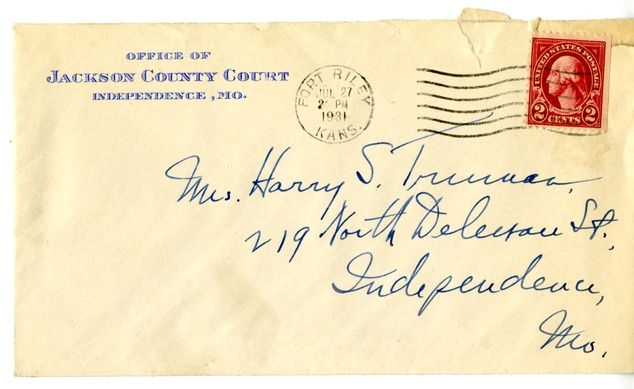 OFFICE OF
JACKSON COUNTY COURT
INDEPENDENCE, MO.
FORT RILEY
JUL 27
2 PM
1931
KANS.
UNITED STATES POSTAGE
2 CENTS 2
Mrs. Harry S. Truman,
219 North Delaware St.,
Independence,
Mo.